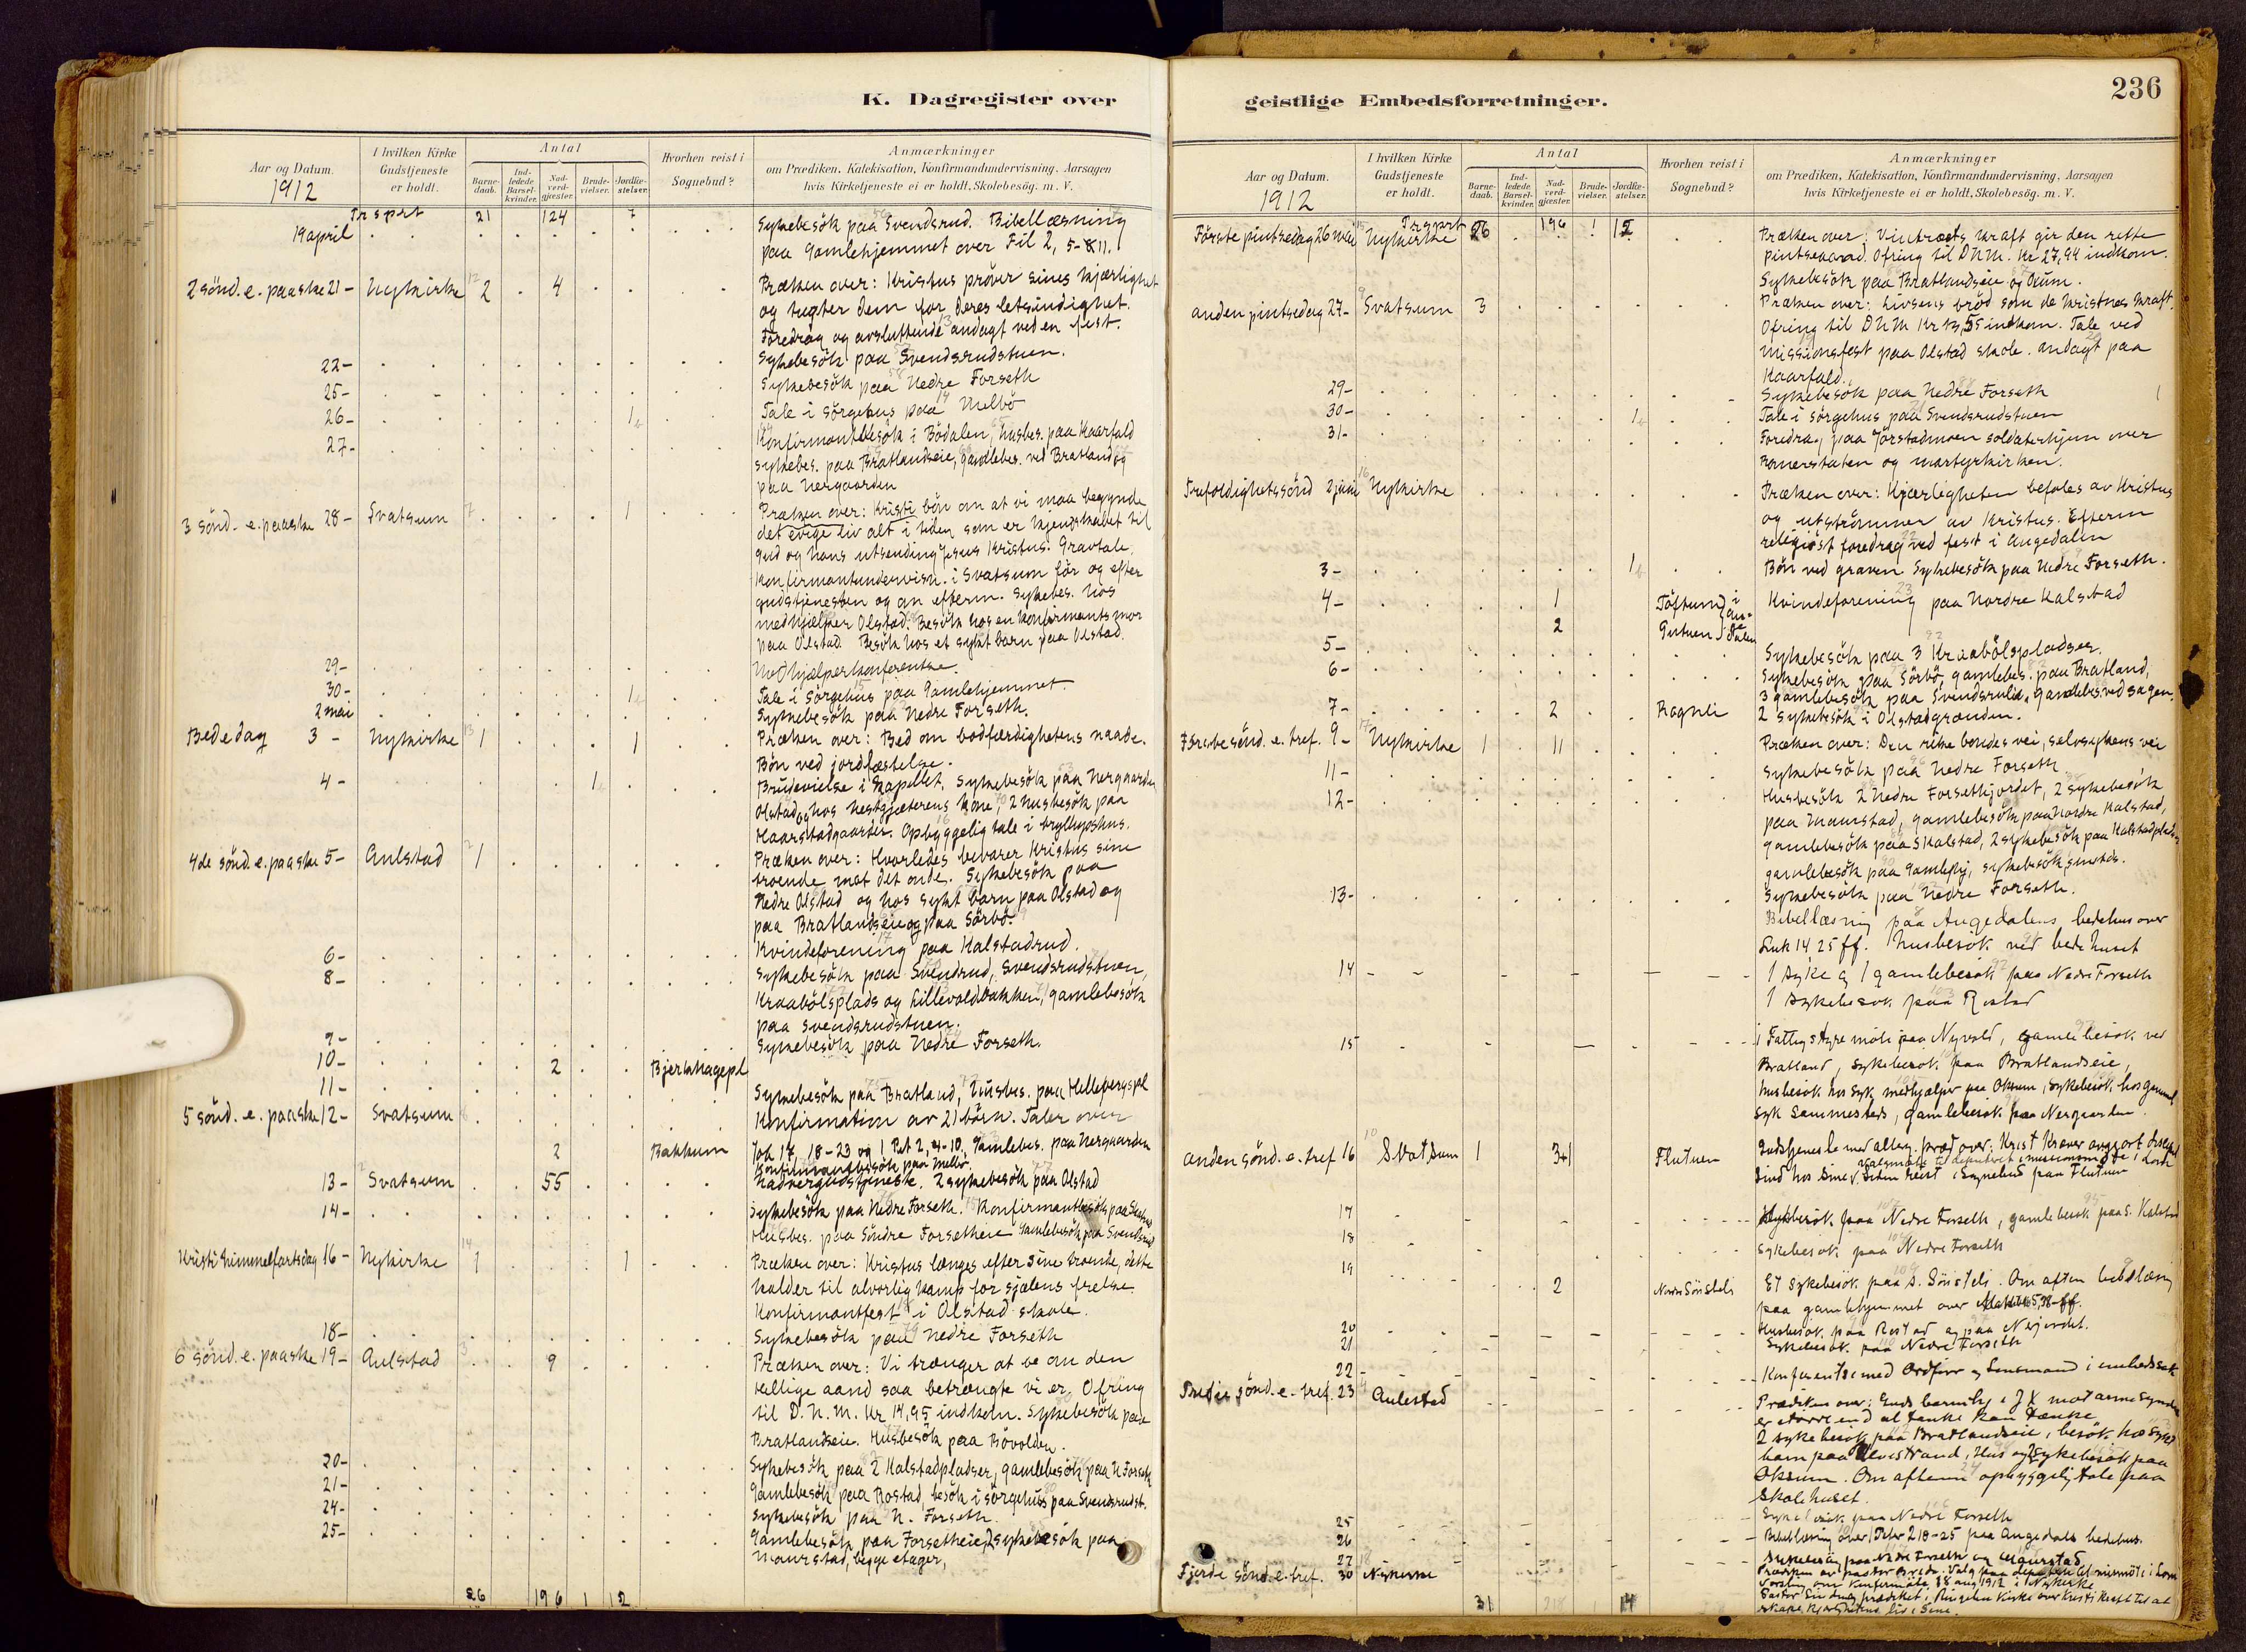 K. Dagregister over
Aar og Datum.
1912
I hvilken Kirke Gudstjeneste er holdt.
Antal
Barnedaab.
Indledede Barselkvinder.
Nadverdgjæster.
Brudevielser.
Jordfæstelser.
Hvorhen reist i Sognebud?
Anmærkninger
om Prædiken, Katekisation, Konfirmandundervisning, Aarsagen
hvis Kirketjeneste ei er holdt, Skolebesög. m. V.
Trsprt 21 124 7
19 april Sykebesök paa Svendsrud. Bibellæsning
paa Gamlehjemmet over Fil 2, 5-11.
2 sönd. e. paaske 21- Nykirke 12 2 4 Præken over: Kristus pröver sines kjærlighet
og tugter dem for deres letsindighet.
Foredrag og avsluttende andagt ved en fest.
22- Sykebesök paa Svendsrudstuen.
25- Sykebesök paa Nedre Forseth
26- 1 Tale i sörgehus paa Melbö
27- Konfirmantbesök i Bödalen, husbes. paa Kaarfald
sykebes. paa Bratlandseie, gamlebes. ved Bratland og
paa Nergaarden
3 sönd. e. paaske 28- Svatsum 7 1 Præken over: Kristi bön om at vi maa begynde
det evige liv alt i tiden som er kjendskabet til
gud og hans utsending Jesus Kristus. Gravtale.
Konfirmantundervisn. i Svatsum för og efter
gudstjenesten og om efterm. Sykebes. hos
medhjælper Olstad. Besök hos en konfirmants mor
paa Olstad. Besök hos et sykt barn paa Olstad.
29- Medhjælperkonferentse.
30- 1 Tale i sörgehus paa Gamlehjemmet.
2 mai Sykebesök paa Nedre Forseth.
Bededag 3- Nykirke 13 1 1 Præken over: Bed om bodfærdighetens naade.
Bön ved jordfæstelse.
4- 1 Brudevielse i Kapellet. Sykebesök paa Nergaarden
Olstad og hos Hestgjæterens kone, 2 husbesök paa
Haarstadgaarder. Opbyggelig tale i bryllupshus.
4de sönd. e. paaske 5- Aulstad 2 1 Præken over: Hvorledes bevarer Kristus sine
troende mot det onde. Sykebesök paa
Nedre Olstad og hos sykt barn paa Olstad og
paa Bratlandseie og paa Sörbö.
6- Kvindeforening paa Kalstadrud.
8- Sykebesök paa Svendsrud, Svendsrudstuen,
Kraabölsplads og Lillevoldbakken, gamlebesök
paa Svendsrudstuen.
9- Sykebesök paa Nedre Forseth.
10- 2 Bjerkehagepl
11- Sykebesök paa Bratland, husbes. paa Hellebergspl
5 sönd. e. paaske 12- Svatsum 8 Konfirmation av 21 börn. Taler over
2 Bakkum Joh 17, 18-23 og 1 Pet 2, 4-10. Gamlebes. paa Nergaarden
Konfirmantbesök paa Melbö.
13- Svatsum 55 Nadvergudstjeneste. 2 sykebesök paa Olstad
14- Sykebesök paa Nedre Forseth. Konfirmantbesök paa
Husbes. paa Söndre Forsetheie Gamlebesök paa Svendsrud
Kristi himmelfartsdag 16- Nykirke 14 1 1 Præken over: Kristus længes efter sine troende, dette
kalder til alvorlig kamp for sjælens frelse.
Konfirmantfest i Olstad skole.
18- Sykebesök paa Nedre Forseth
6 sönd. e. paaske 19- Aulstad 3 9 Præken over: Vi trænger at be om den
Hellige aand saa betrængte vi er. Ofring
til D.N.M. Kr 14,95 indkom. Sykebesök paa
Bratlandseie. Husbesök paa Bövolden.
20- Sykebesök paa 2 Kalstadpladser, gamlebesök paa N Forseth
21- Gamlebesök paa Rostad, besök i sörgehus paa Svendsrudst.
24- Sykebesök paa N. Forseth.
25- Gamlebesök paa Forsetheie, 2 sykebesök paa
Maurstad, begge etager,
26 196 1 12
geistlige Embedsforretninger.
236
Aar og Datum.
1912
I hvilken Kirke Gudstjeneste er holdt.
Antal
Barnedaab.
Indledede Barselkvinder.
Nadverdgjæster.
Brudevielser.
Jordfæstelser.
Hvorhen reist i Sognebud?
Anmærkninger
om Prædiken, Katekisation, Konfirmandundervisning, Aarsagen
hvis Kirketjeneste ei er holdt, Skolebesög. m. V.
Trsport
Förste pintsedag 26 mai 15 Nykirke 26 196 1 12 Præken over: Vintræets kraft gir den rette
pintseaand. Ofring til DNM. Kr 27,94 indkom.
Sykebesök paa Bratlandseie og Öium.
anden pintsedag 27- 9 Svatsum 3 Præken over: Livsens bröd som de kristnes kraft.
Ofring til DNM Kr 13,55 indkom. Tale ved
missionsfest paa Olstad skole. Andagt paa
Kaarfald.
29- Sykebesök paa Nedre Forseth
30- 1 Tale i sörgehus paa Svendsrudstuen
31- Foredrag paa Jörstadmoen soldaterhjem over
Romerstaten og martyrkirken.
Trefoldighetssönd 2 juni 16 Nykirke Præken over: Kjærligheten befales av Kristus
og utströmmer av Kristus. Efterm
religiöst foredrag ved fest i Augedalen
3- 1 Bön ved graven. Sykebesök paa Nedre Forseth.
4- 1 Töftum Kvindeforening paa Nordre Kalstad
2
5- Sykebesök paa 3 Kraabölspladser.
6- Sykebesök paa Sörbö, gamlebes. paa Bratland,
3 gamlebesök paa Svendsrulia, gamlebes. ved sagen.
7- 2 Rognli 2 sykebesök i Olstadgrænden.
Förstesönd. e. tref. 9- 17 Nykirke 1 11 Præken over: Den rike bondes vei, selvsykens vei
11- Sykebesök paa Nedre Forseth
12- Husbesök 2 Nedre Forsethjordet, 2 sykebesök
paa Maurstad, gamlebesök paa Nordre Kalstad,
gamlebesök paa S Kalstad, 2 sykebesök paa Kalstadpladser
gamlebesök paa Gamlehj, sykebesök smsteds.
13- Sykebesök paa Nedre Forseth.
Bibellæsning paa Augedalens bedehus over
Luk 14 25 ff. Husbesök ved bedehuset
14 1 syke og 1 gamlebesök paa Nedre Forseth
1 sykebesök paa Rostad
15 i Fattigstyremöte paa Nyvold, gamlebesök ved
Bratland, sykebesök paa Bratlandseie,
husbesök hos syk medhjælper paa Öksum, sykebesök hos gammel
syk sammesteds, gamlebesök paa Nergaarden.
anden sönd. e. tref 16 10 Svatsum 1 34 Flutuen Gudstjeneste med alterg. præd over: Krist kræver avgjort
sind hos sine. Siden reist i Sognebud paa Flutuen
17 Sykebesök paa Nedre Forseth, gamlebesök paa S. Kalstad
18 Sykebesök paa Nedre Forseth
19 2 Et sykebesök paa S. Sönsteli. Om aften bibellæsning
paa gamlehjemmet over
20 Husbesök paa Rostad og paa Nerjordet.
21 Sykebesök paa Nedre Forseth
22 Konferentse med Ordförer og Lensmand i embedssak
Tredie sönd. e. tref. 23 4 Aulestad Prædiken over: Guds barmhj i JX mot arme syndere
er större end al tanke kan tænke
2 sykebesök paa Bratlandseie, besök hos sykt
barn paa Ulvestrand, Hus og sykebesök paa
Öksum. Om aftenen opbyggelig tale paa
Skolehuset.
25 Sykebesök paa Nedre Forseth
26 Bibellæsning over 1 Peter 2 18-25 paa Augedals bedehus.
27 Sykebesög paa Nedre Forseth og Maurstad
Fjerde sönd. e. tref. 30 18 Nykirke Prædiken av pastor Valg paa
31 218 14